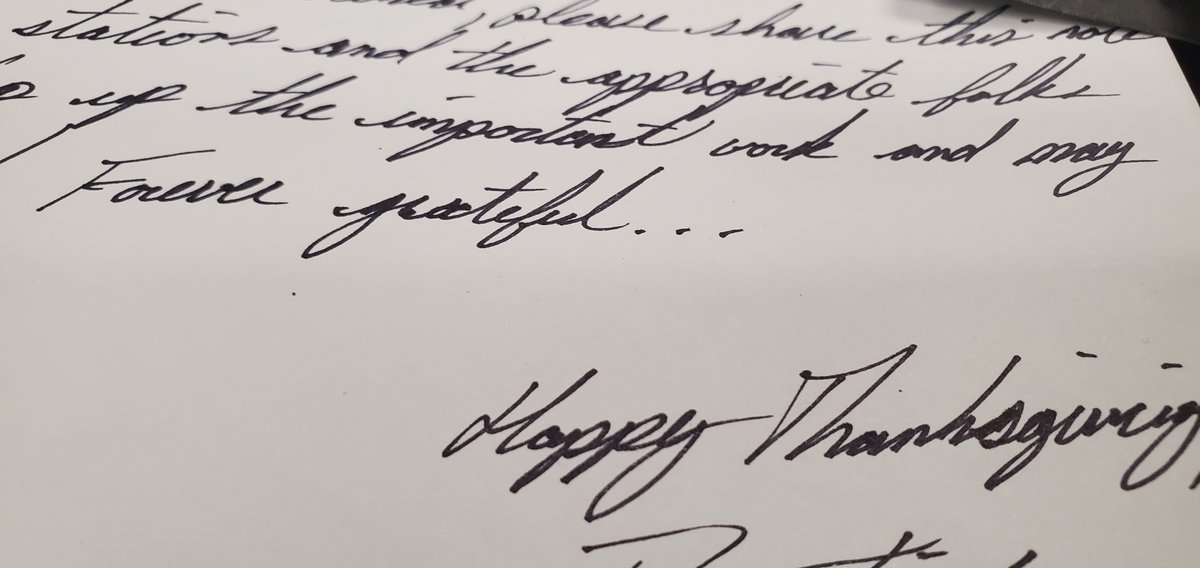 , please share this note
stations and the appropriate folks
up the important work and may
Forever grateful...
Happy Thanksgiving,